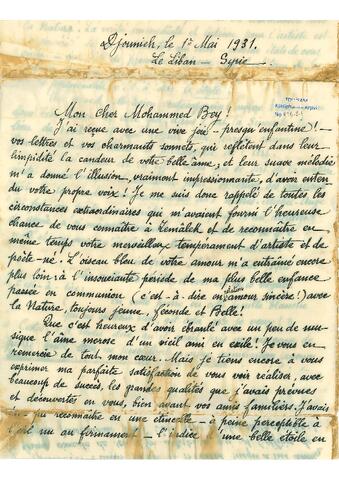 Djounieh, le 1er Mai 1931.
Le Liban — Syrie.
Mon Cher Mohammed Bey!
J'ai reçue avec une vive joie — presqu'enfantine! —
vos lettres et vos charmants sonnets, qui reflètent dans leur
limpidité la candeur de votre belle âme, et leur suave mélodie
m'a donné l'illusion, vraiment impressionnante, d'avoir enten-
du votre propre voix! Je me suis donc rappelé de toutes les
circonstances extraordinaires qui m'avaient fourni l'heureuse
chance de vous connaître à Kémâlek et de reconnaître en
même temps votre merveilleux tempérament d'artiste et de
poète-né. L'oiseau bleu de votre amour m'a entraîné encore
plus loin: à l'insouciante période de ma plus belle enfance
passée en communion (c'est-à-dire en amour sincère!) avec
la Nature, toujours jeune, féconde et Belle!
Que c'est heureux d'avoir ébranlé avec un peu de mu-
sique l'âme morose d'un vieil ami en exile! Je vous en
remercie de tout mon cœur. Mais je tiens encore à vous
exprimer ma parfaite satisfaction de vous voir réaliser, avec
beaucoup de succès, les grandes qualités que j'avais prévues
et découvertes en vous, bien avant vos amis familiers. J'avais
reconnaître en une étincelle — à peine perceptible à
l'œil nu au firmament — l'indice d'une belle étoile en